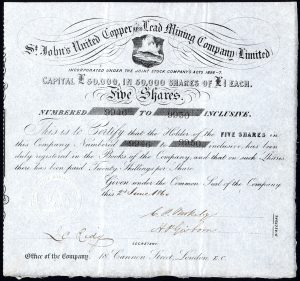 St. John's United Copper and Lead Mining Company Limited
INCORPORATED UNDER THE JOINT STOCK COMPANY'S ACTS 1856-7.
CAPITAL £50,000, IN 50,000 SHARES OF £1 EACH.
Five Shares.
NUMBERED 9946 TO 9950 INCLUSIVE.
This is to Certify that the Holder of the FIVE SHARES in
this Company Numbered 9946 to 9950 inclusive has been
duly registered in the Books of the Company, and that on such Shares
there has been paid Twenty Shillings per Share
Given under the Common Seal of the Company
this 2 June 186
SECRETARY
Office of the Company, 18 Cannon Street, London E.C.